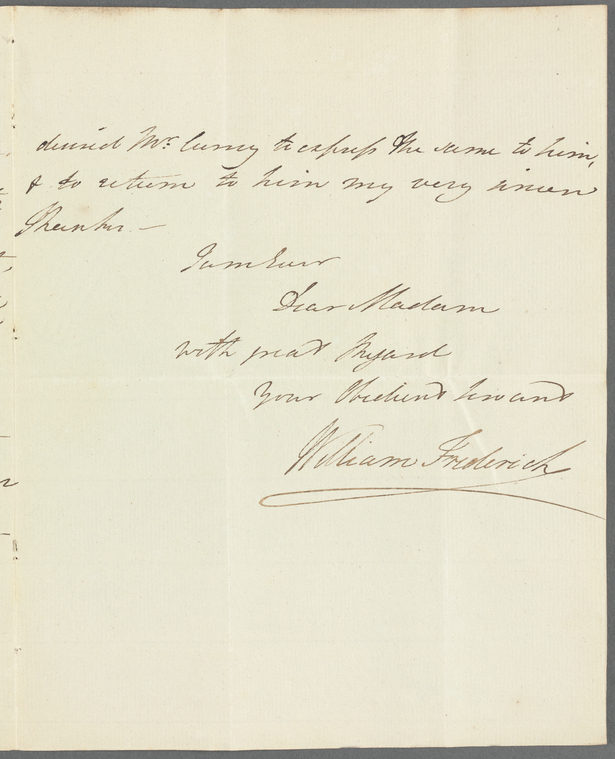 desired Mr. Curry to express the same to him,
& to return to him my very sincere
Thanks. —
I am Ever
Dear Madam
with great Regard
your Obedient Servant
William Frederick